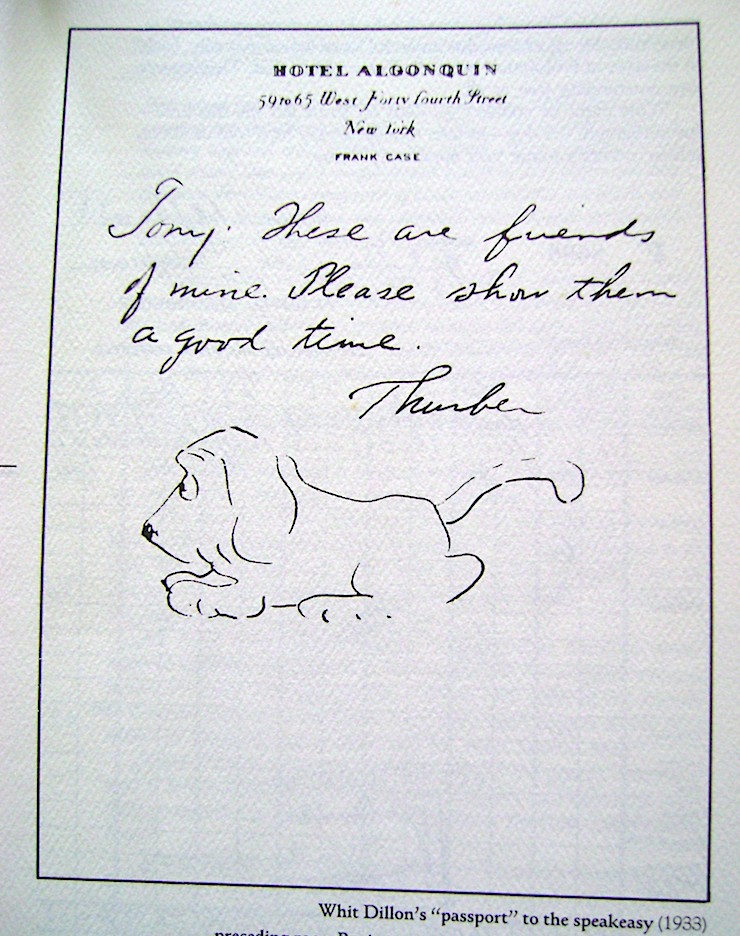 HOTEL ALGONQUIN
59 to 65 West Forty fourth Street
New York
FRANK CASE
Tony. These are friends
of mine. Please show them
a good time.
Thurber
Whit Dillon's "passport" to the speakeasy (1933)
preceding